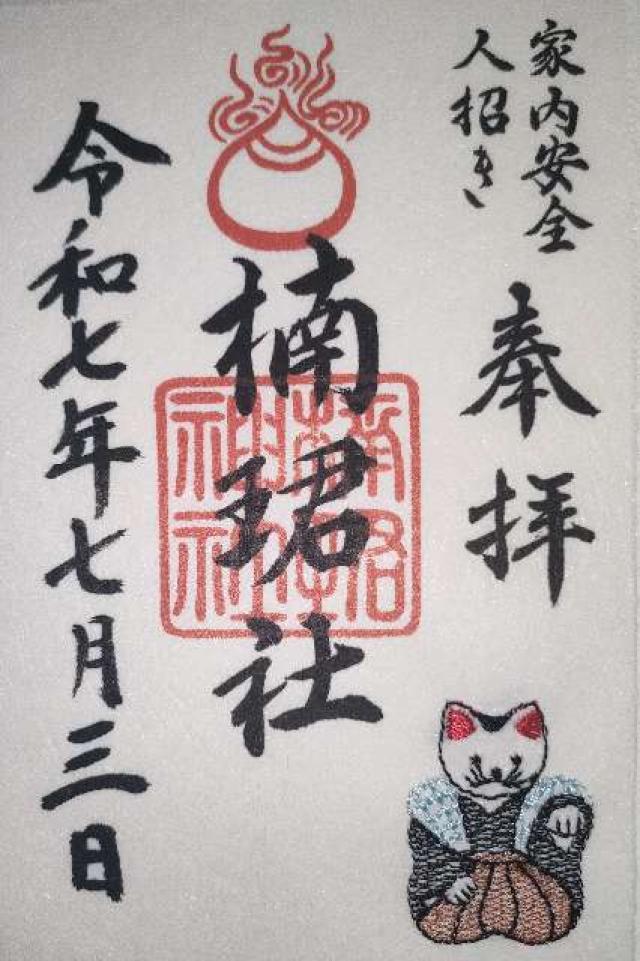 家内安全
人招き
奉拝
楠珺社
楠珺
神社
令和七年七月三日